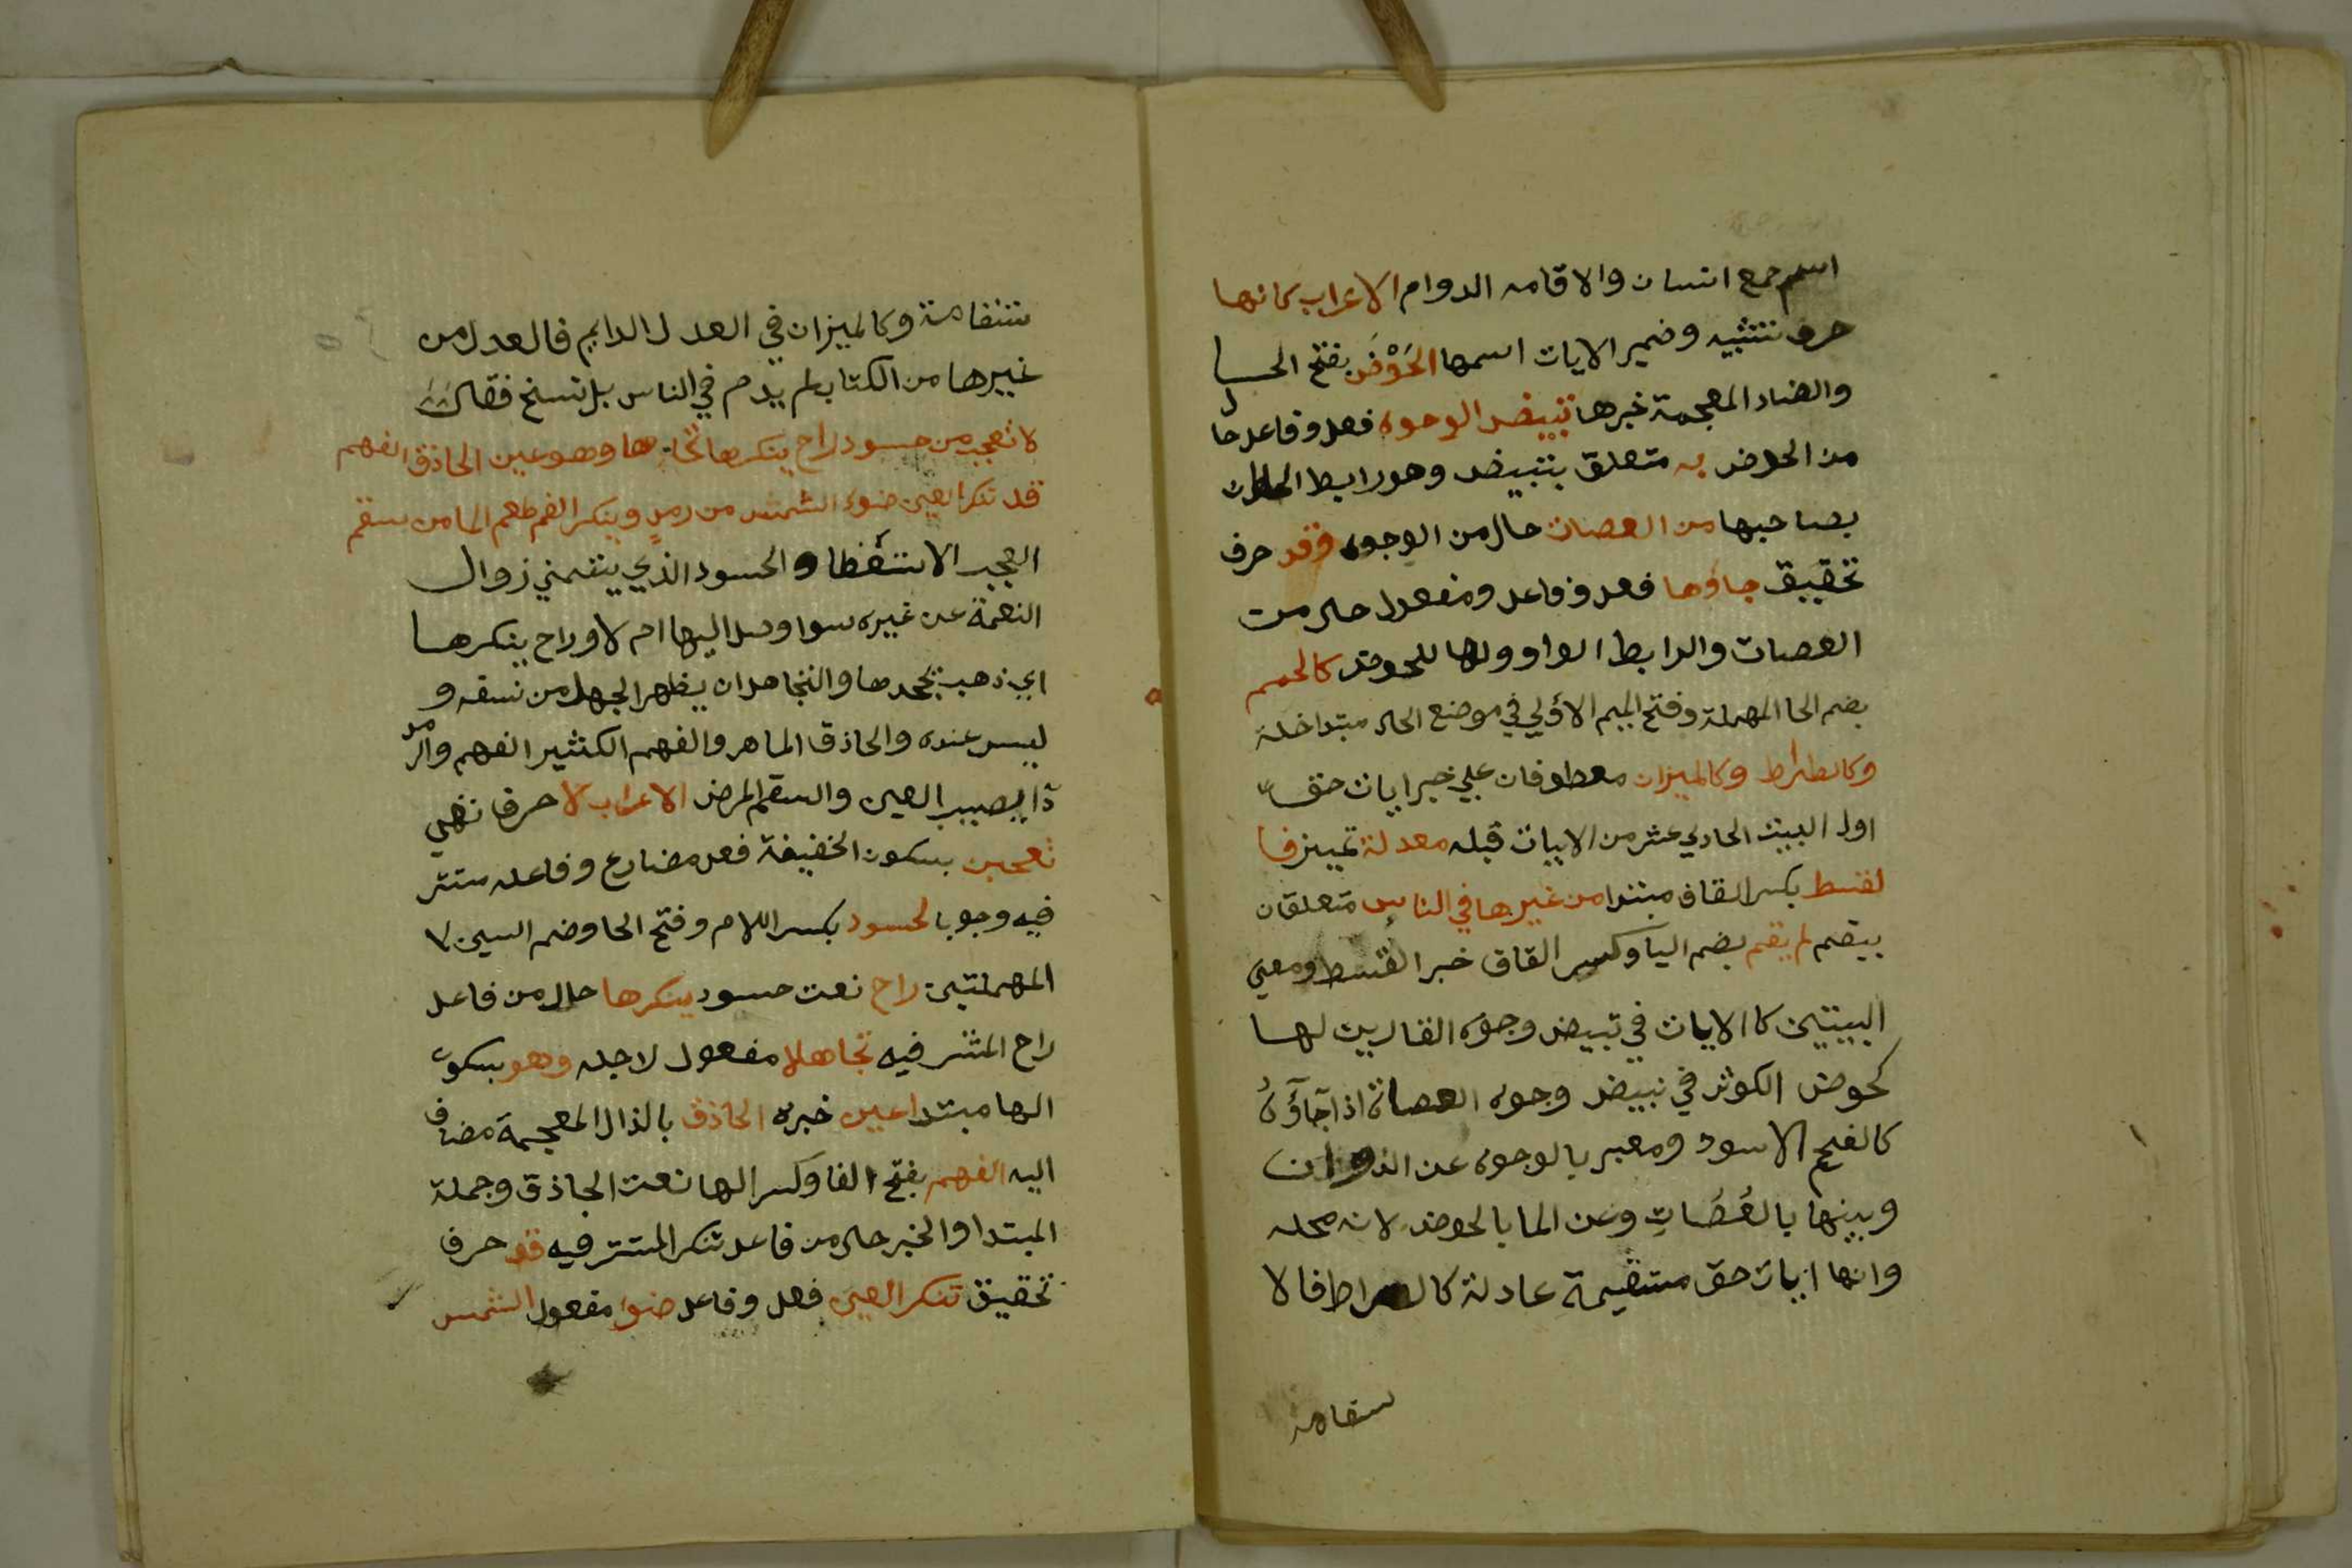 اسم جمع انسان والاقامه الدوام الاعراب كانها
حرف تشبيه وضمير الايات اسمها الحَوْضَ بفتح الحا
والضاد المعجمة خبرها تبيض الوجوه فعل وفاعل حال
من الحوض به متعلق بتبيض وهو رابط الحال
بصاحبها من العصات حال من الوجوه وقد حرف
تحقيق جاؤها فعل وفاعل ومفعول حال من
العصات والرابط الواو ولها للحوض كالحمم
بضم الحا المهملة وفتح الميم الاولي في موضع الحال مبتداخلة
وكالصراط وكالميزان معطوفان علي خبر ايات حق
اول البيت الحادي عشر من الابيات قبله معدلة تمييز فا
لقسط بكسر القاف مبتدا من غيرها في الناس متعلقان
بيقم لم يقم بضم اليا وكسر القاف خبر القسط ومعني
البيتين كا الايات في تبيض وجوه القاريين لها
كحوض الكوثر في تبييض وجوه العصاة اذا جاؤهُ
كالفحم الاسود ومعبر بالوجوه عن الذوات
وبينها بالعُصَاتِ وعن الما بالحوض لانه محله
وانها ايات حق مستقيمة عادلة كالصراط فالا
ستقامة
ستقامة وكالميزان في العدل الدايم فالعدل من
غيرها من الكتاب لم يدم في الناس بل نسخ فقال
لا تعجبن لحسود راح ينكرها تجاهلا وهو عين الحاذق الفهم
قد تنكر العين ضوء الشمس من رمدٍ وينكر الفم طعم الما من سقم
العجب الاستعظا والحسود الذي يتمني زوال
النعمة عن غيره سوا وصل اليها ام لا وراح ينكرها
اي ذهب يجحدها والتجاهل ان يظهر الجهل من نفسه و
ليس عنده والحاذق الماهر والفهم الكثير الفهم والرمد
دا يصيب العين والسقم المرض الاعراب لا حرف نهي
تعجبن بسكون الخفيفة فعل مضارع وفاعله مستتر
فيه وجوبا لحسود بكسر اللام وفتح الحا وضم السين
المهملتين راح نعت حسود ينكرها حال من فاعل
راح المستتر فيه تجاهلا مفعول لاجله وهو بسكون
الها مبتدا عين خبره الحاذق بالذال المعجمة مضاف
اليه الفهم بفتح الفا وكسر الها نعت الحاذق وجملة
المبتدا والخبر حال من فاعل تنكر المستتر فيه قد حرف
تحقيق تنكر العين فعل وفاعل ضوا مفعول الشمس